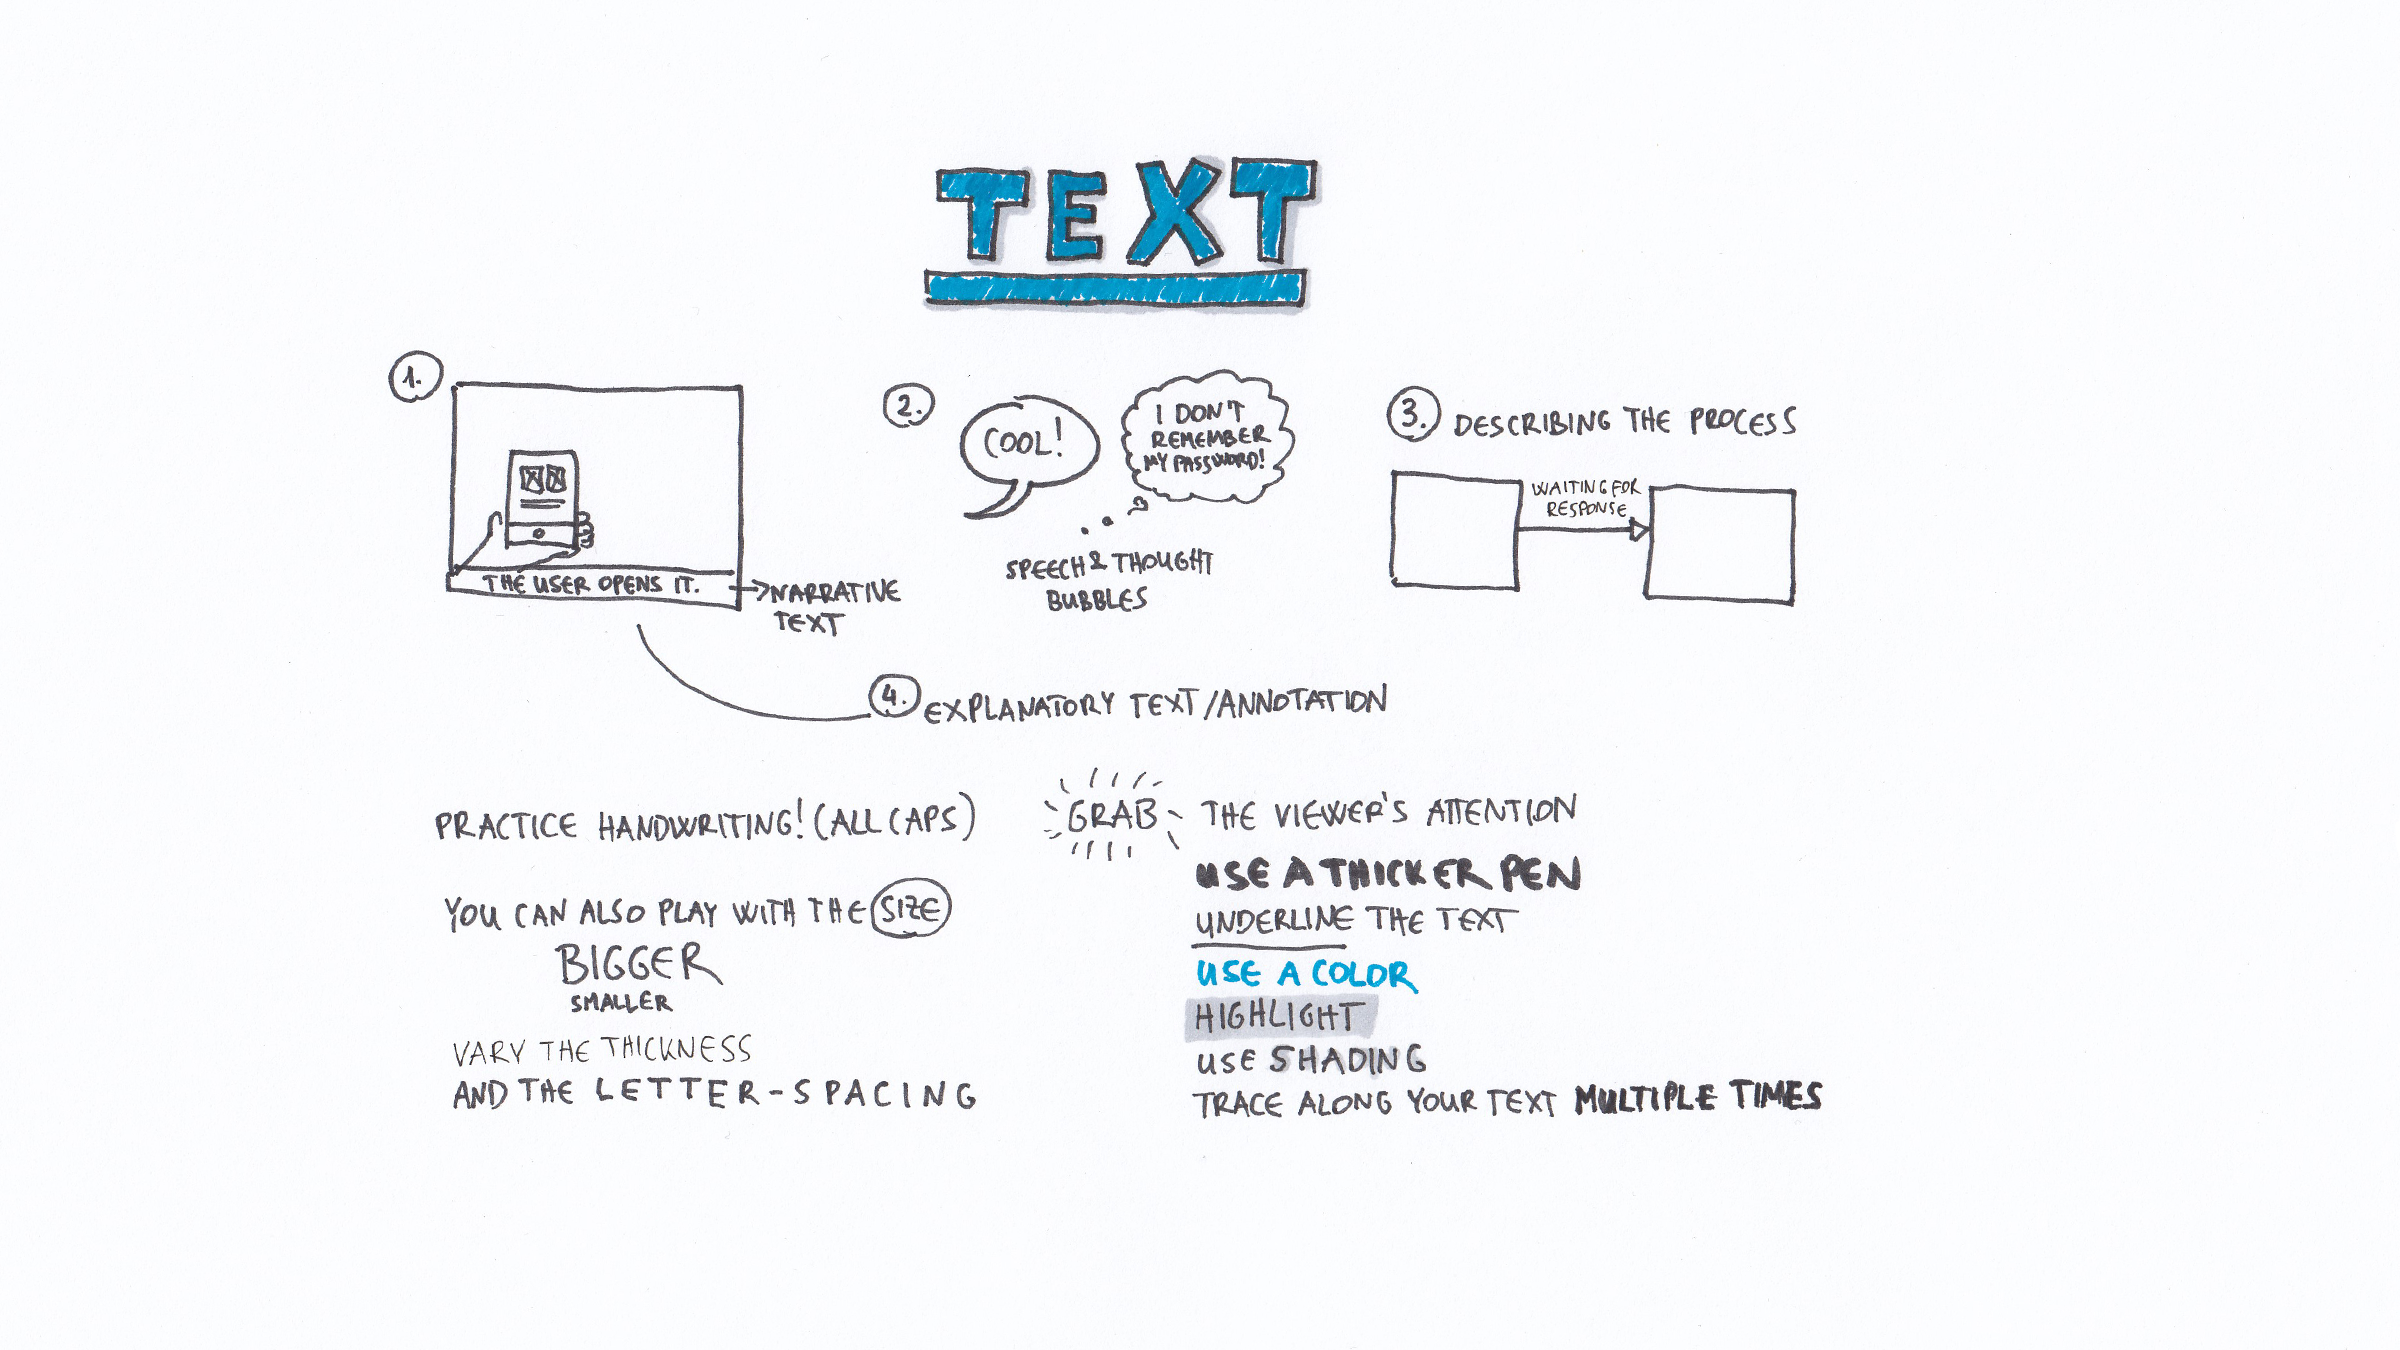 TEXT
1.
THE USER OPENS IT.
NARRATIVE
TEXT
2.
COOL!
I DON'T
REMEMBER
MY PASSWORD!
SPEECH & THOUGHT
BUBBLES
3. DESCRIBING THE PROCESS
WAITING FOR
RESPONSE
4. EXPLANATORY TEXT/ANNOTATION
PRACTICE HANDWRITING! (ALL CAPS)
YOU CAN ALSO PLAY WITH THE SIZE
BIGGER
SMALLER
VARY THE THICKNESS
AND THE LETTER-SPACING
GRAB THE VIEWER'S ATTENTION
USE A THICKER PEN
UNDERLINE THE TEXT
USE A COLOR
HIGHLIGHT
USE SHADING
TRACE ALONG YOUR TEXT MULTIPLE TIMES